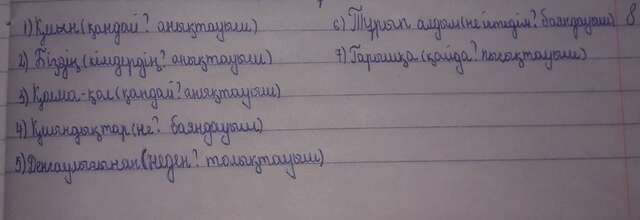 1) Қиын (қандай? анықтауыш)
2) Біздің (кімдердің? анықтауыш)
3) Қыма-қал (қандай? анықтауыш)
4) Қиындықтар (не? баяндауыш)
5) Денсаулығынан (неден? толықтауыш)
6) Тұрып алдым (не істедім? баяндауыш)
7) Ғарышқа (қайда? пысықтауыш)
8